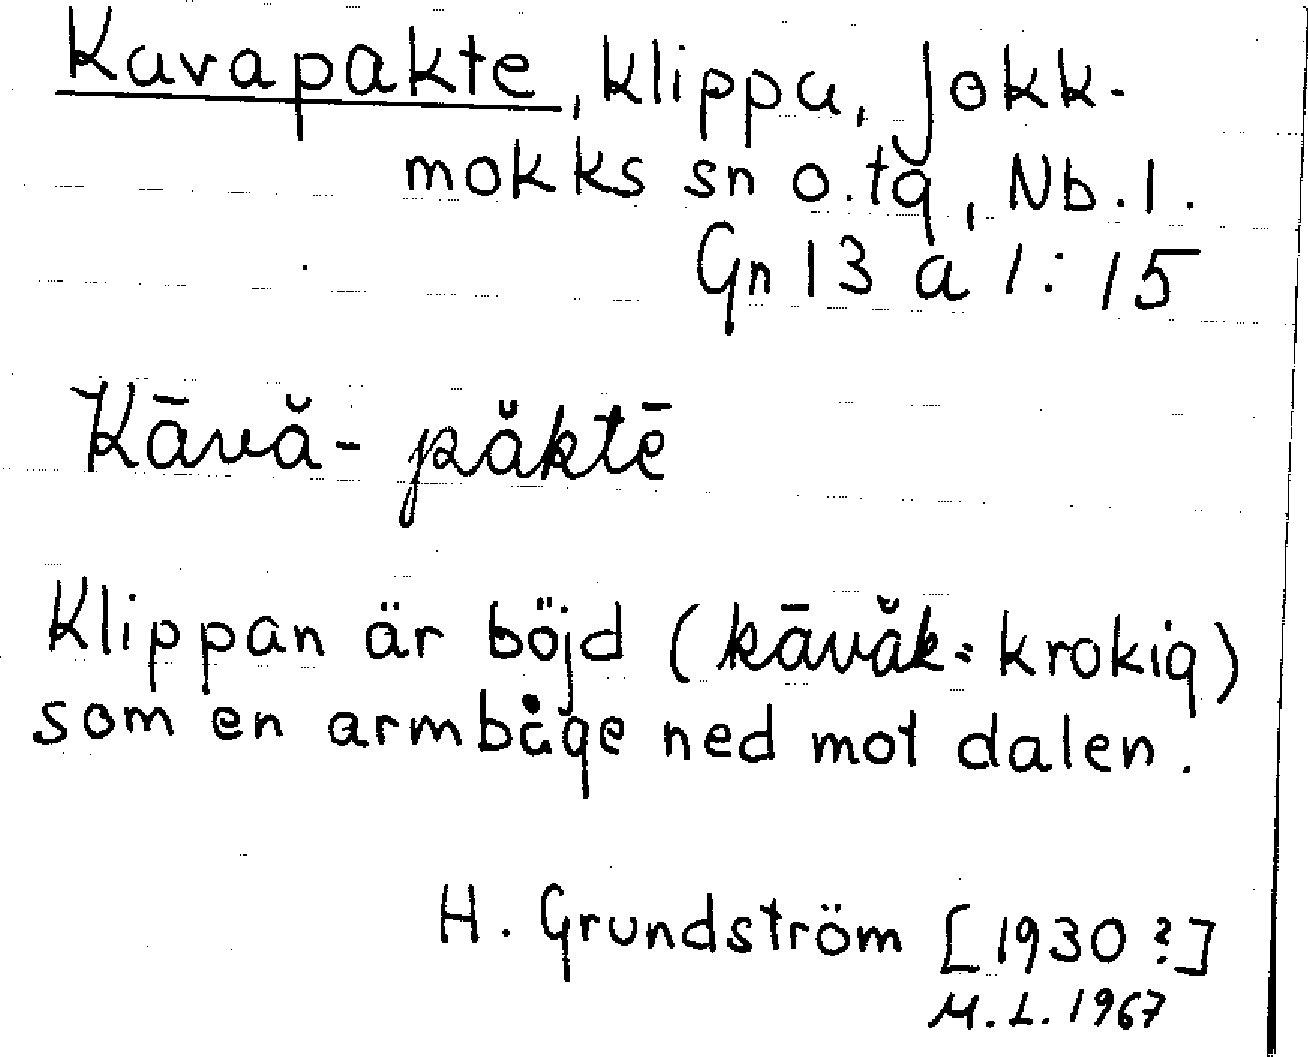 Kavapakte, klippa, Jokk-
mokks sn o. tg, Nb. l.
Gn 13 a 1:15
Kāvă-păktē
Klippan är böjd (kāvăk = krokig)
som en armbåge ned mot dalen.
H. Grundström [1930?]
M.L. 1967